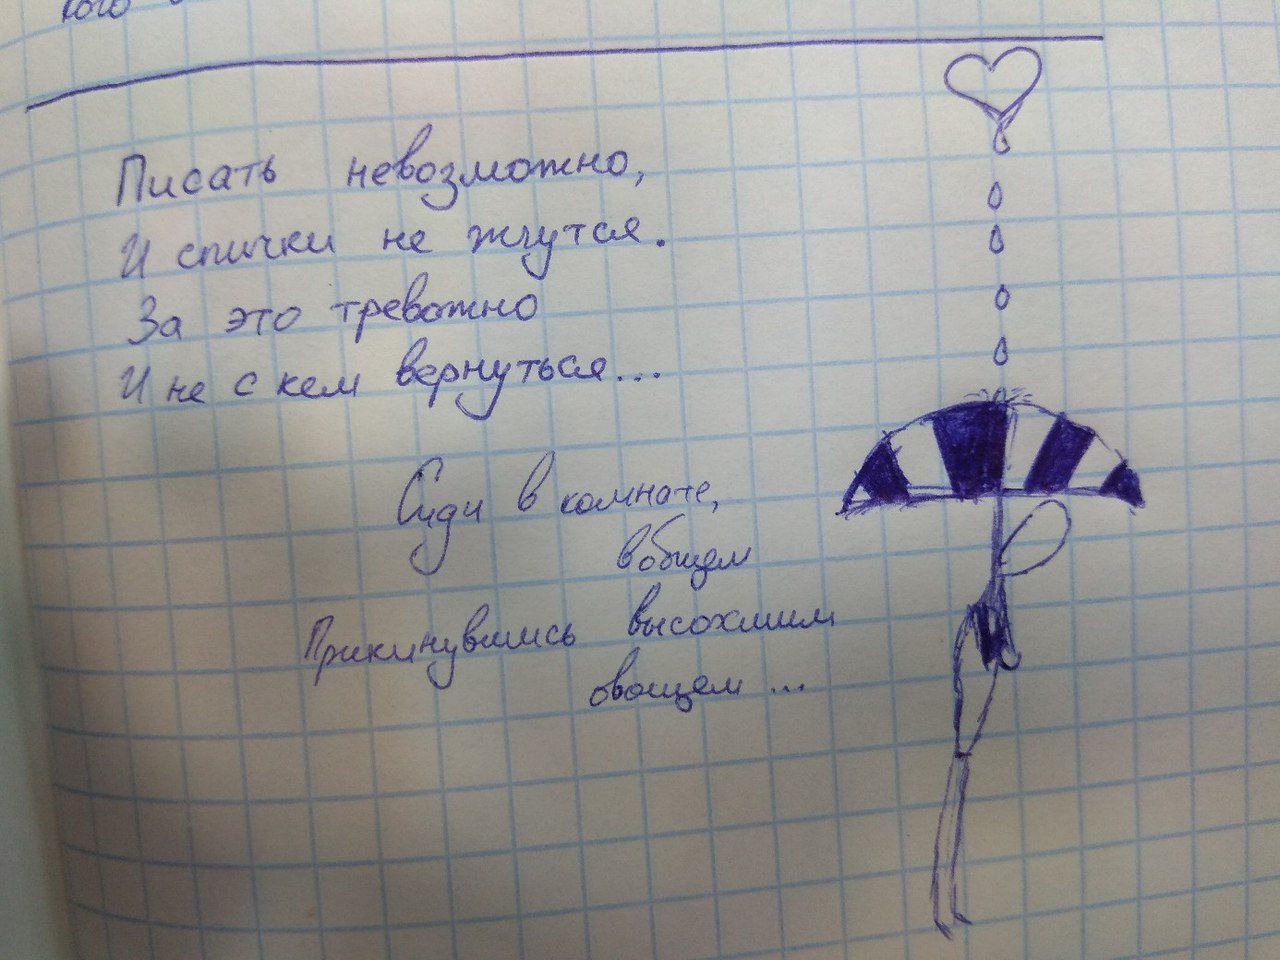 кого
Писать невозможно,
И спички не жгутся.
За это тревожно
И не с кем вернуться...
Сиди в комнате,
вобщем
Прикинувшись высохшим
овощем ...